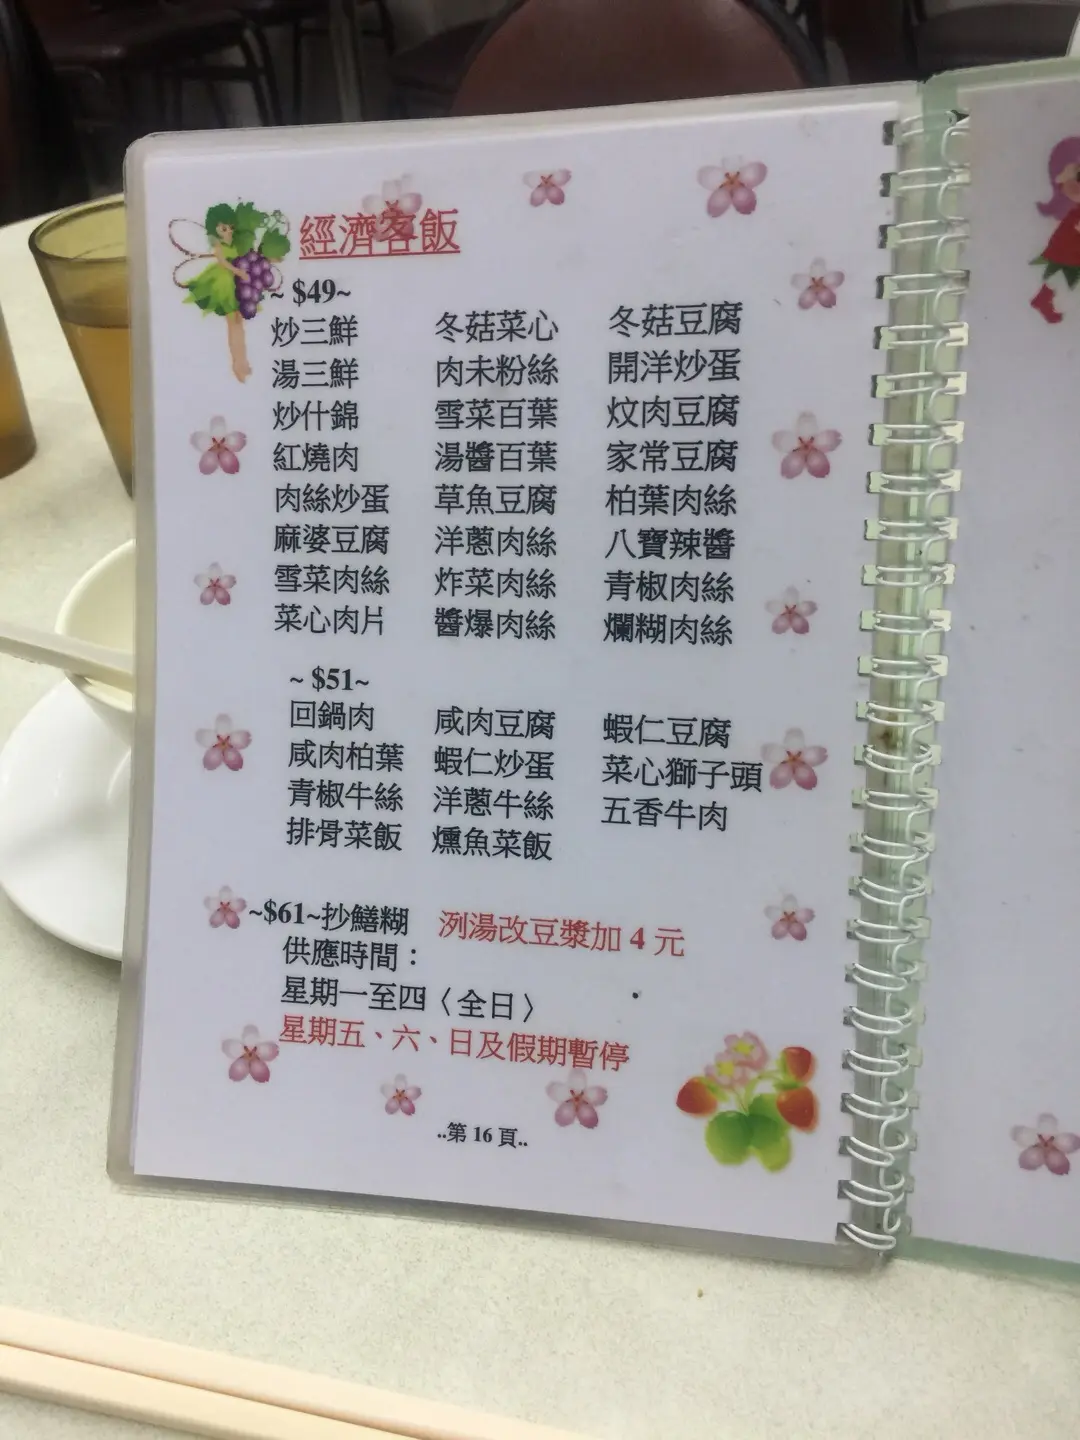 經濟客飯
~ $49~
炒三鮮 冬菇菜心 冬菇豆腐
湯三鮮 肉未粉絲 開洋炒蛋
炒什錦 雪菜百葉 炆肉豆腐
紅燒肉 湯醬百葉 家常豆腐
肉絲炒蛋 草魚豆腐 柏葉肉絲
麻婆豆腐 洋蔥肉絲 八寶辣醬
雪菜肉絲 炸菜肉絲 青椒肉絲
菜心肉片 醬爆肉絲 爛糊肉絲
~ $51~
回鍋肉 咸肉豆腐 蝦仁豆腐
咸肉柏葉 蝦仁炒蛋 菜心獅子頭
青椒牛絲 洋蔥牛絲 五香牛肉
排骨菜飯 燻魚菜飯
~$61~抄鱔糊 洌湯改豆漿加 4 元
供應時間：
星期一至四〈全日〉
星期五、六、日及假期暫停
..第 16 頁..